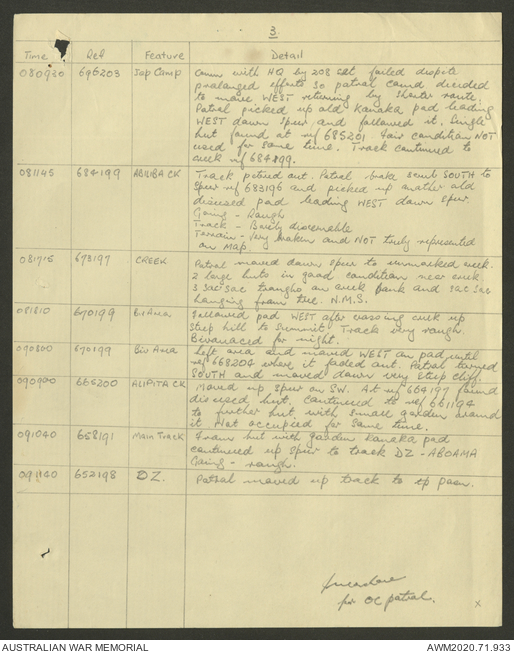 3
Time Ref Feature Detail
080930 696203 Jap Camp Comm with HQ by 208 set failed dispite
prolonged efforts so patrol comd decided
to move WEST returning by shorter route.
Patrol picked up old Kanaka pad leading
WEST down spur and followed it. Single
hut found at ref 685201 fair condition NOT
used for some time. Track continued to
creek ref 684199.
081145 684199 ABIUBA CK Track petered out. Patrol broke scrub SOUTH to
spur ref 683196 and picked up another old
disused pad leading WEST down spur.
Going - Rough
Track - Barely discernable
Terrain - Very broken and NOT truly represented
on Map.
081715 673197 CREEK Patrol moved down spur to unmarked creek.
2 large huts in good condition near creek
3 sac sac troughs on creek bank and sac sac
hanging from tree. N.M.S.
081810 670199 Biv Area Followed pad WEST after crossing creek up
steep hill to summit. Track very rough.
Bivouaced for night.
090800 670199 Biv Area Left area and moved WEST on pad until
ref 668204 where it faded out. Patrol turned
SOUTH and moved down very steep cliff.
090900 665200 ALIPITA CK Moved up spur on SW. At ref 664197 found
disused hut. Continued to ref 661194
to further hut with small garden around
it Not occupied for some time.
091040 658191 Main Track From hut with garden Kanaka pad
continued up spur to track DZ - ABOAMA
Going - rough.
091140 652198 DZ. Patrol moved up track to tp posn.
for OC patrol.
x
AUSTRALIAN WAR MEMORIAL AWM2020.71.933